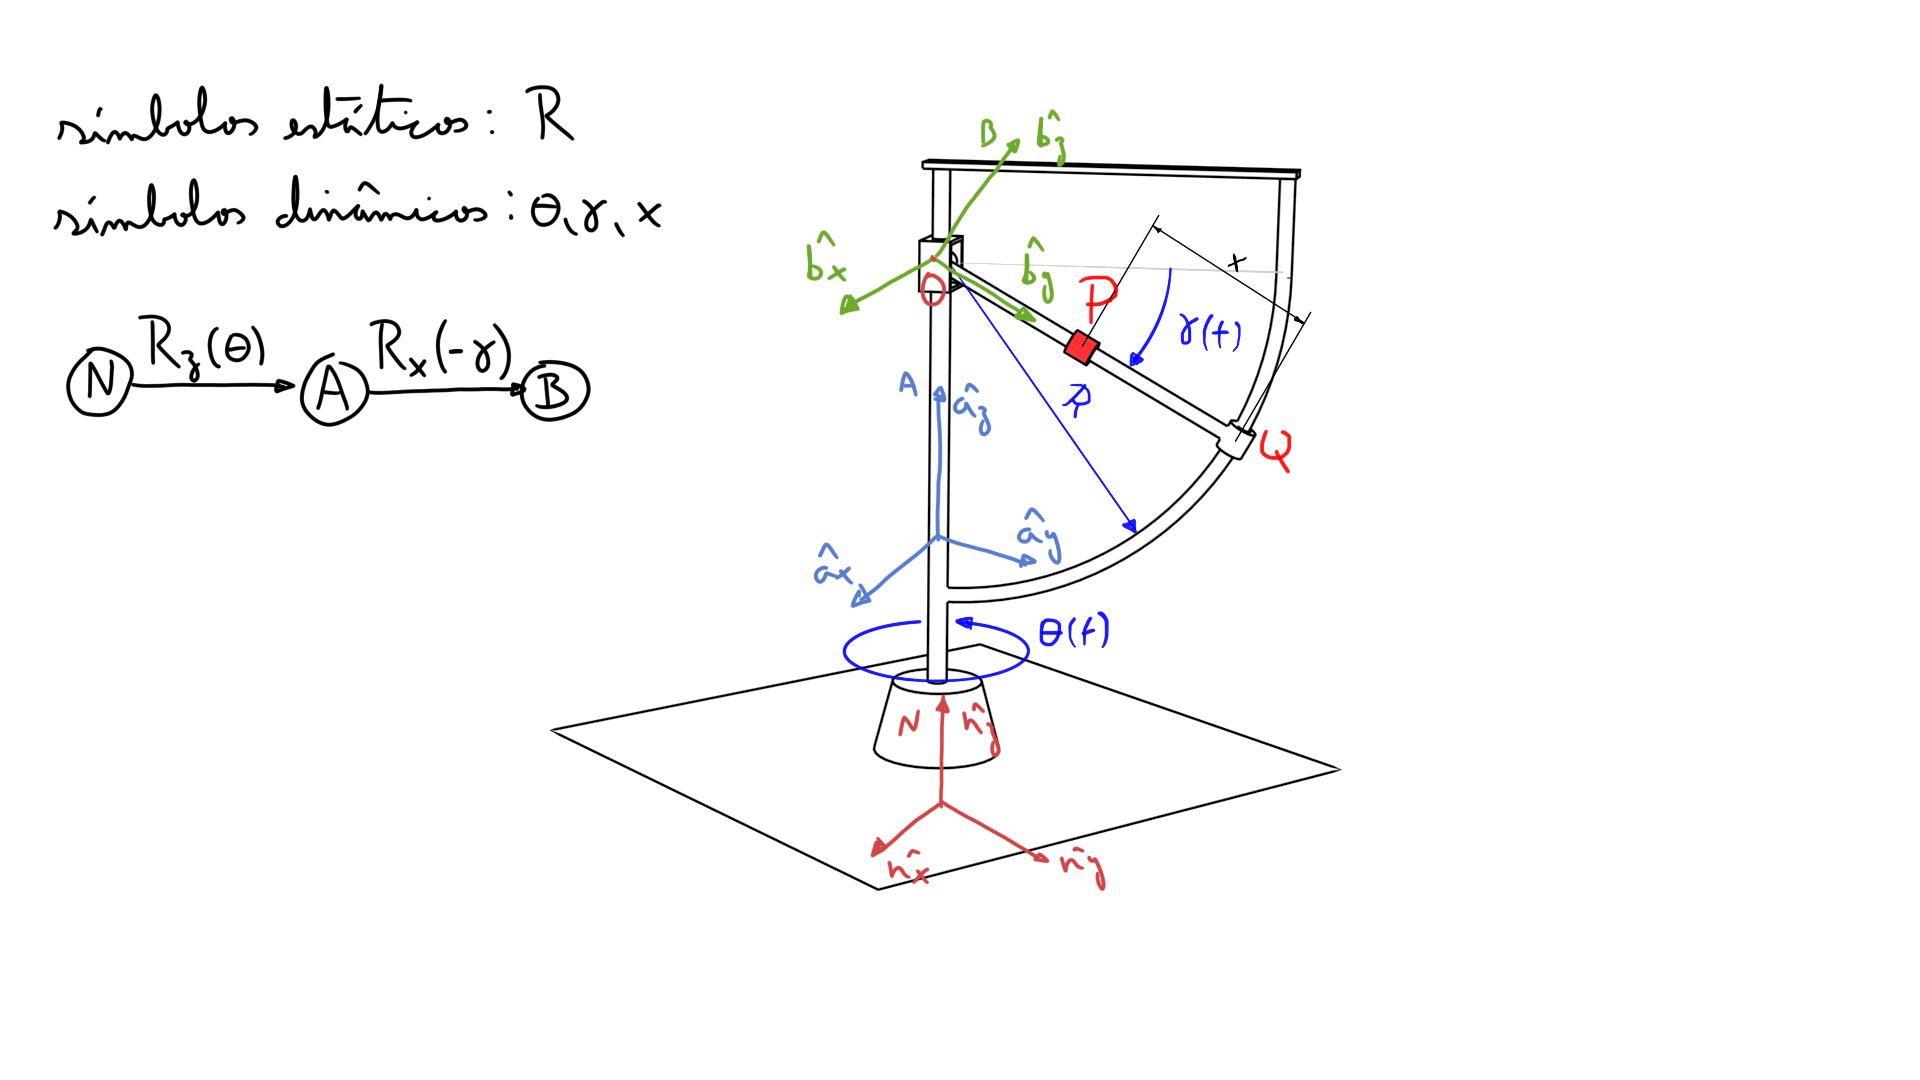 símbolos estáticos: R
símbolos dinâmicos: θ, γ, x
N R_z(θ) A R_x(-γ) B
B b̂_z
b̂_x
b̂_y
O
P
x
γ(t)
R
Q
A â_z
â_x
â_y
θ(t)
N n̂_z
n̂_x
n̂_y